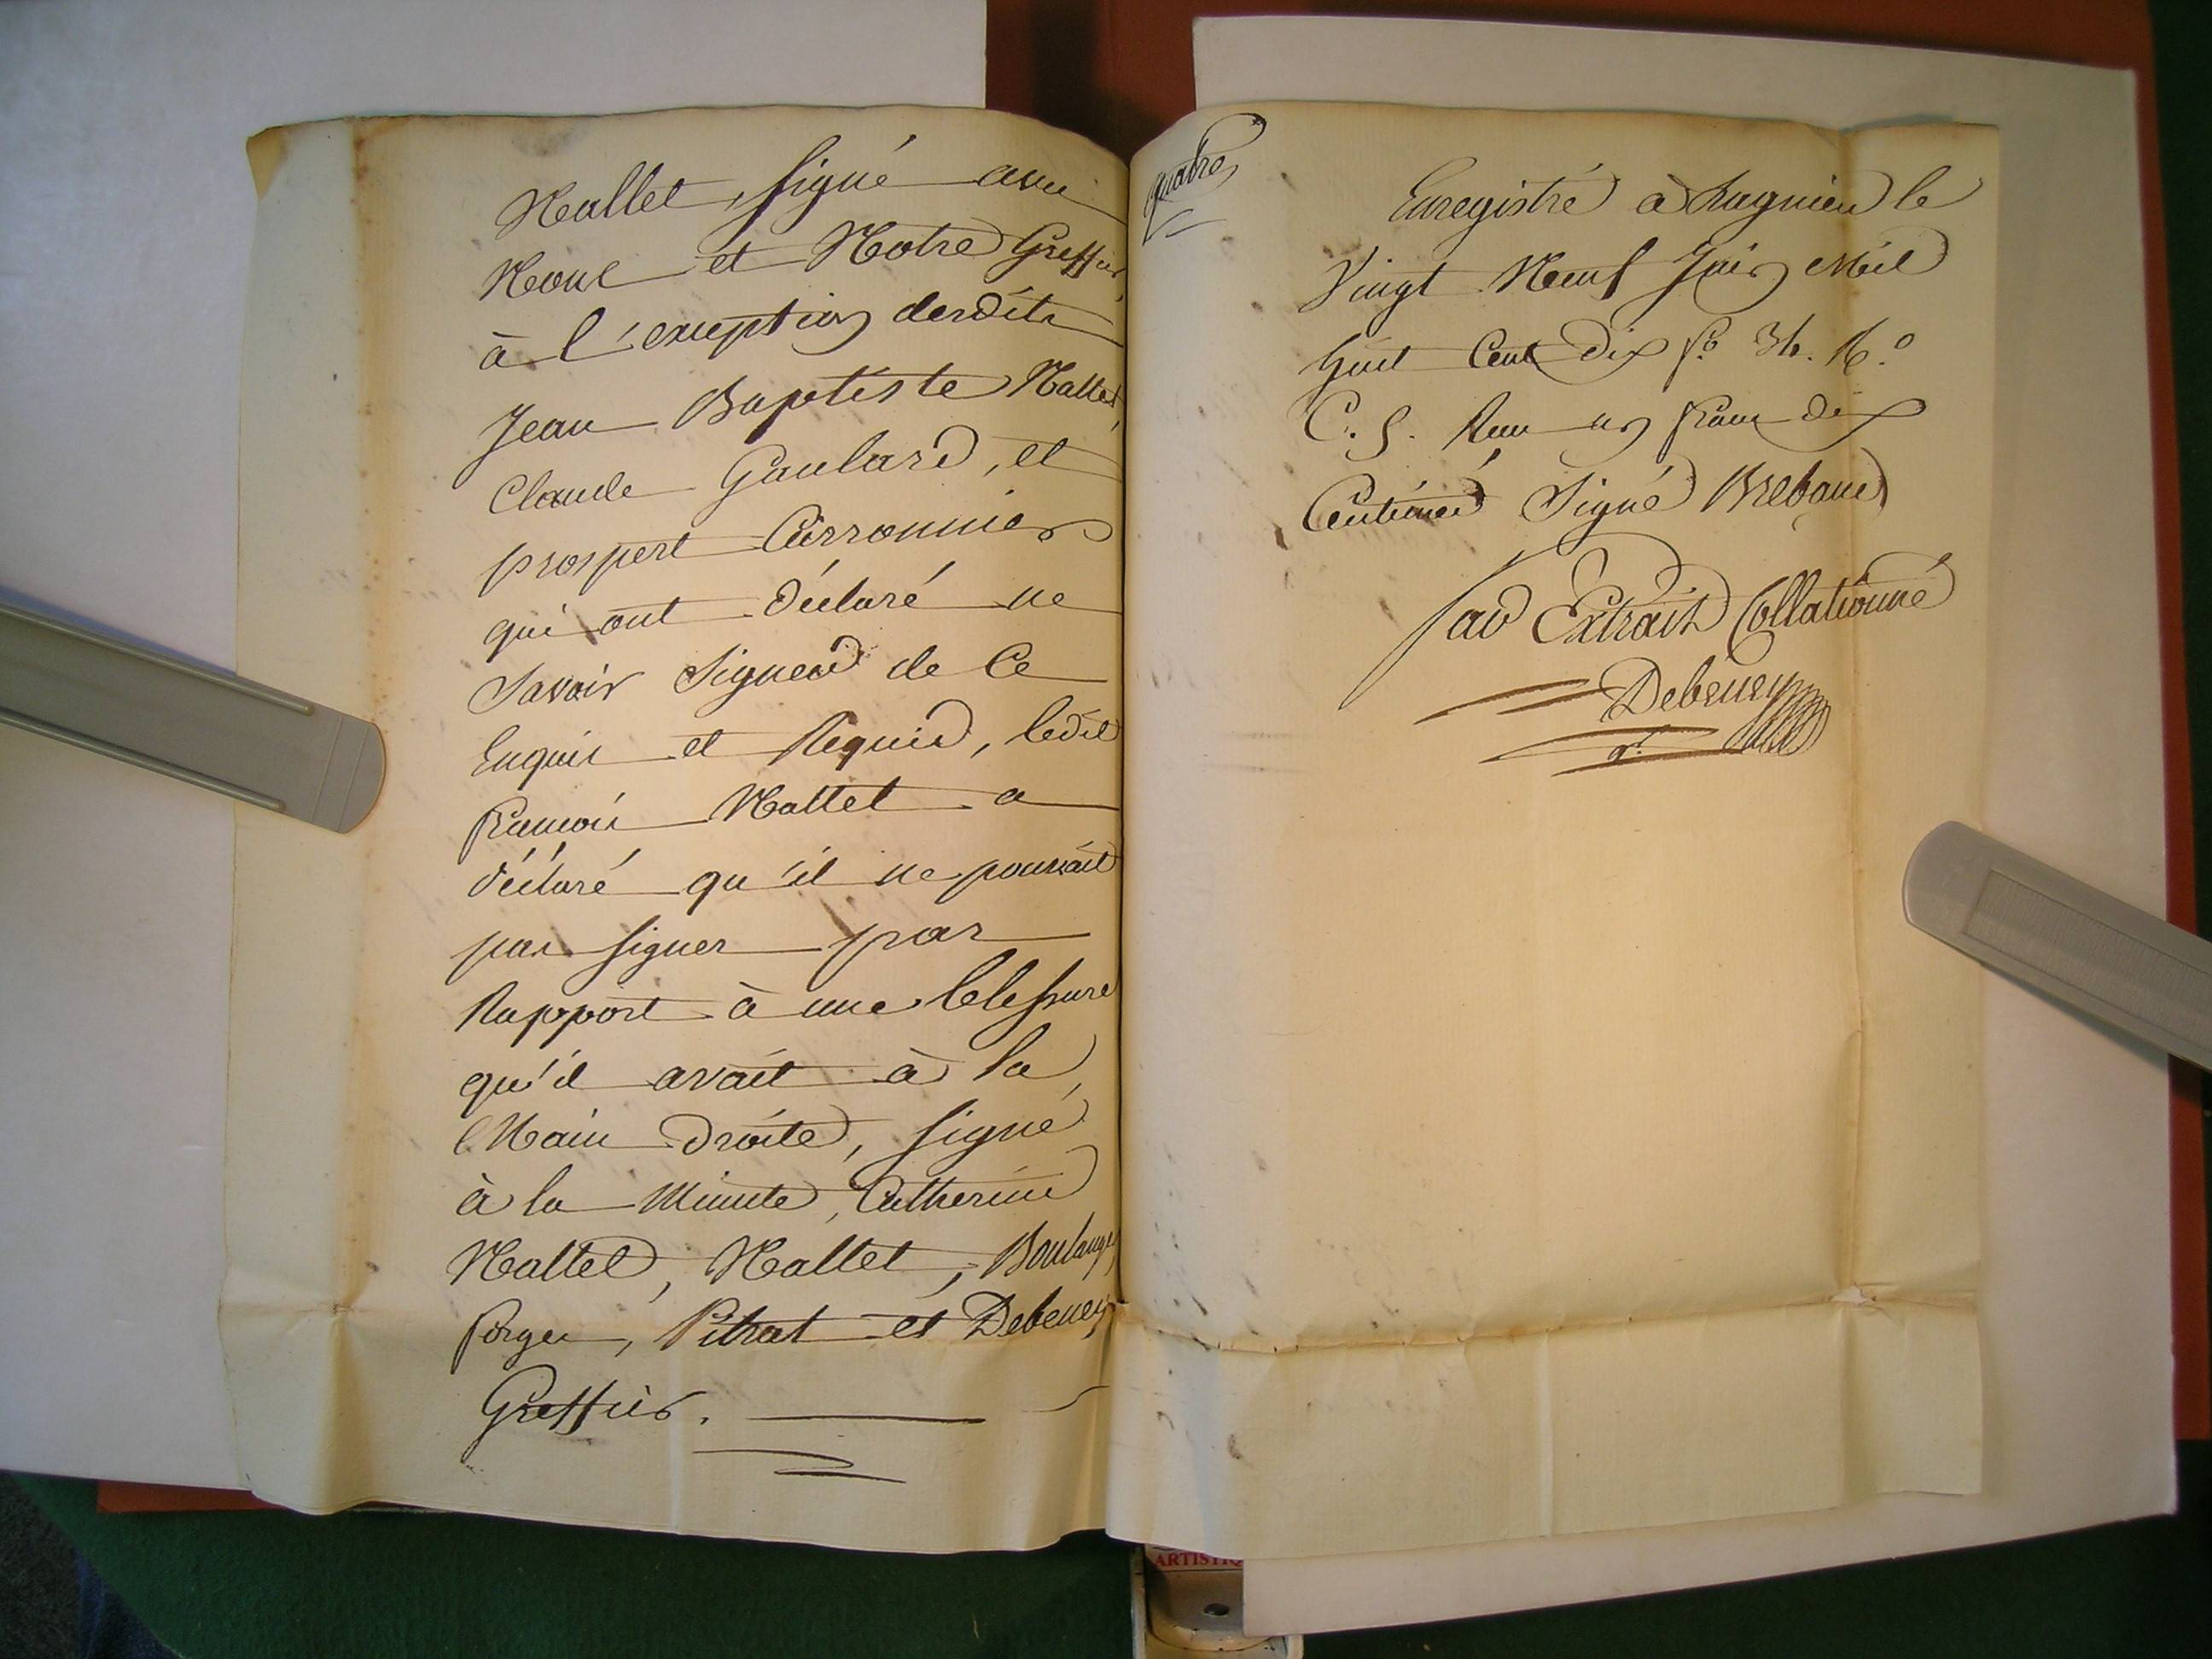 Mallet, signé avec
Nous et Notre Greffier,
à l'exception desdits
Jean Baptiste Mallet,
Claude Goulard, et
prospert Cirronnier
qui ont déclaré ne
Savoir Signer de Ce
Enquis et Requis, ledit
francois Mallet a
déclaré qu'il ne pouvait
pas signer par
Rapport à une blessure
qu'il avait à la
Main droite, signé
à la Minute, Catherine
Mallet, Mallet, Boulanger
forges, Pitrat et Debeney
Greffier.
quatre
Enregistré à Lagnieu le
Vingt Neuf Juin Mil
huit Cent dix f.o 34. R.o
C. 5. Reçu un franc dix
Centimes Signé Brebant
Par Extrait Collationné
Debeney
gr.
ARTISTIQ